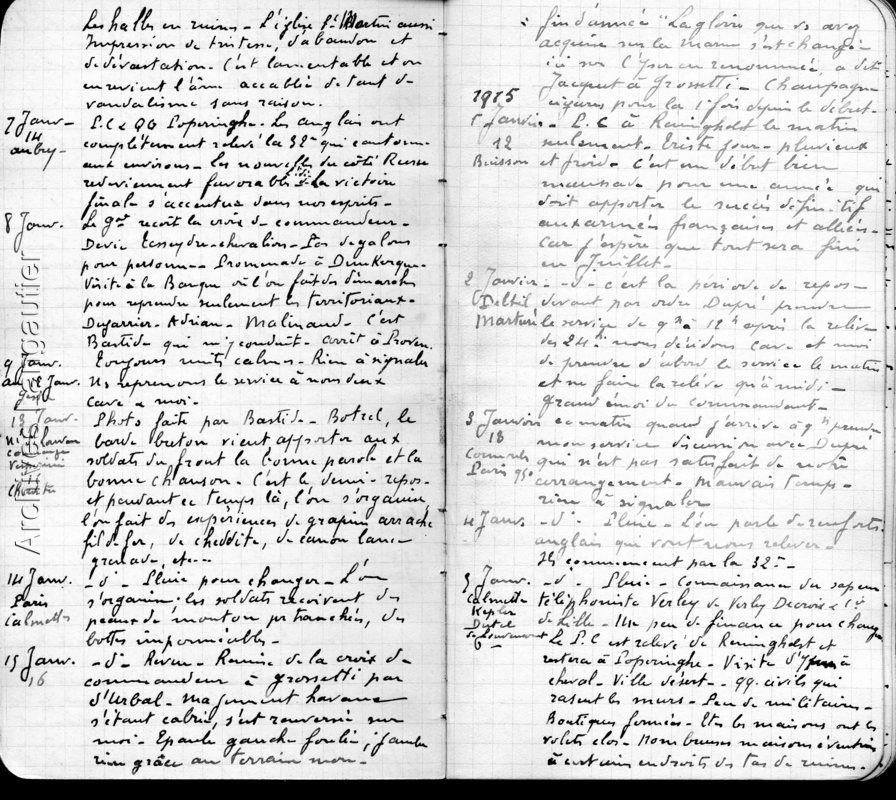 Les halles en ruines - L'église St Martin aussi
Impression de tristesse, d'abandon et
de dévastation. C'est lamentable et on
en revient l'âme accablée de tant de
vandalisme sans raison.
7 Janv - S.C. & QG Poperinghe. Les anglais ont
14 complètement relevé la 32e qui cantonne
aux environs - Les nouvelles du côté Russe
redeviennent favorables. La victoire
finale s'accentue dans nos esprits -
8 Janv. Le gal reçoit la croix de commandeur -
Devic Tesseydre chevaliers - Pas de galons
pour personne - Promenade à Dunkerque -
Visite à la Banque où l'on fait des démarches
pour reprendre seulement les territoriaux -
Dugarrier - Adrian - Malinaud - C'est
Bastide qui m'y conduit - arrêt à Proven.
9 Janv. Toujours nuits calmes - Rien à signaler
au 12 Janv. Ns reprenons le service à nous deux
Cave & moi -
13 Janv - Photo faite par Bastide - Botrel, le
barde breton vient apporter aux
soldats du front la bonne parole et la
bonne chanson - C'est le demi-repos -
et pendant ce temps là, l'on s'organise
l'on fait des expériences de grapin arrache
fil de fer, de cheddite, de canon lance
grenade, etc...
14 Janv. - d° - Pluie pour changer - L'on
Paris s'organise : les soldats reçoivent des
Calmettes peaux de mouton pr tranchées, des
bottes imperméables -
15 Janv. - d° - Revue - Remise de la croix de
16 commandeur à Grossetti par
d'Urbal - Ma jument havane
s'étant cabrée, s'est renversée sur
moi - Epaule gauche foulée, jambe
rien grâce au terrain mou -
fin d'année "La gloire que vs avez
acquise sur la Marne s'est changée
ici sur l'Yser en renommée, a dit
Jacquet à Grossetti - Champagne
cigares pour la 1e fois depuis le début -
1915
1 Janvier - S.C. à Reninghelst le matin
12 seulement - Triste jour - pluvieux
Buisson et froid - C'est un début bien
maussade pour une année qui
doit apporter le succès définitif
aux armées françaises et alliées -
Car j'espère que tout sera fini
en Juillet -
2 Janvier - - d° - c'est la période de repos -
Delteil devant par ordre Dupré prendre
le service de 9h à 12h après la relève
des 24h nous décidons Cave et moi
de prendre d'abord le service le matin
et ne faire la relève qu'à midi -
Grand émoi du commandant -
3 Janvier ce matin quand j'arrive à 9h prendre
13 mon service discussion avec Dupré
qui n'est pas satisfait de notre
Paris arrangement - Mauvais temps -
rien à signaler
4 Janv. - d° - Pluie - L'on parle de renforts
anglais qui vont nous relever -
Ils commencent par la 32e -
5 Janv. - d° - Pluie - Connaissance du sapeur
Calmette téléphoniste Verley de Verley Decroix & Cie
Kepler de Lille - Un peu de finance pour changer
Le S.C est relevé de Reninghelst et
restera à Poperinghe - Visite d'Ypres à
cheval - Ville déserte - qq. civils qui
rasent les murs - Peu de militaires -
Boutiques fermées - Ttes les maisons ont les
volets clos - Nombreuses maisons éventrées
à certains endroits des tas de ruines -